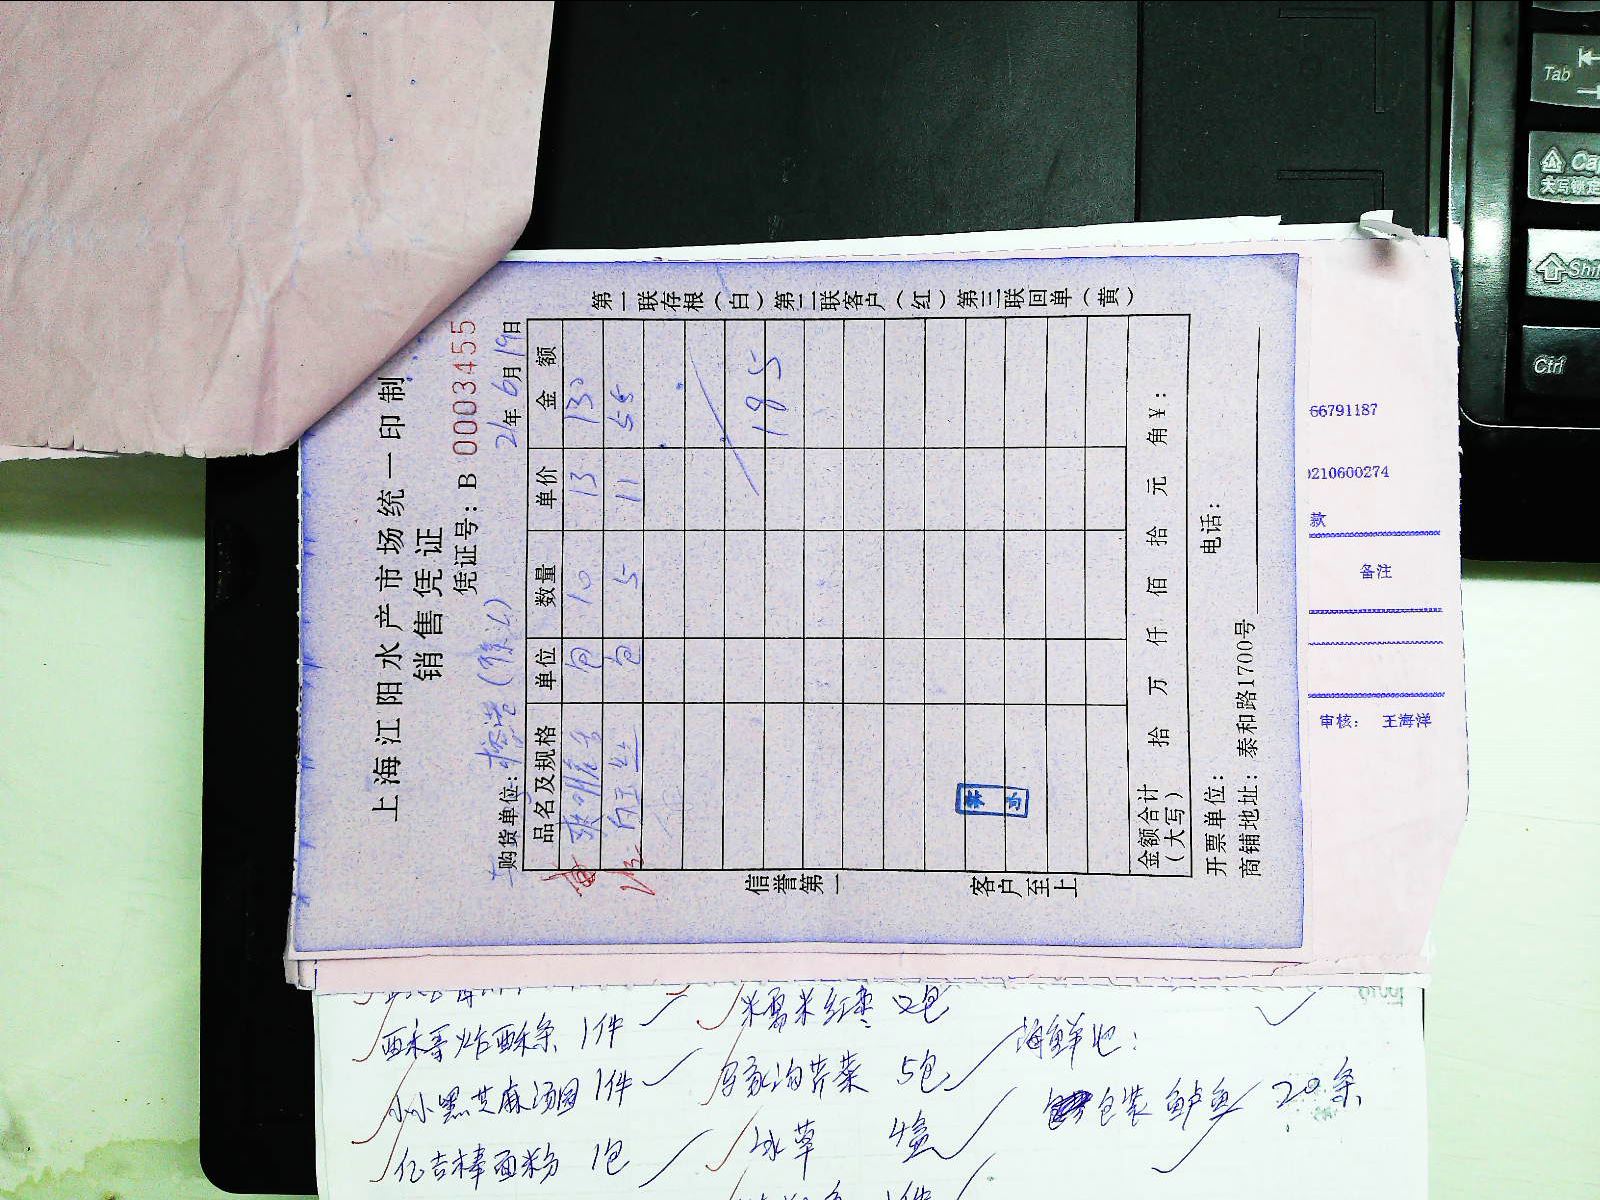 上海江阳水产市场统一印制
销售凭证
凭证号：B 0003455
购货单位：
21年6月19日
品名及规格 单位 数量 单价 金额
包 10 13 130
白玉丝 包 5 11 55
185
金额合计（大写） 拾 万 仟 佰 拾 元 角￥：
开票单位： 电话：
商铺地址：泰和路1700号
第一联存根（白）第二联客户（红）第三联回单（黄）
信誉第一 客户至上
66791187
0210600274
款
备注
审核： 王海洋
1件
小小黑芝麻汤圆 1件
亿吉棒面粉 1包
米易米红枣 2包
芹菜 5包
冰草 4盒
海鲜池：
包装鲈鱼 20条
Tab
大写锁定
Shift
Ctrl